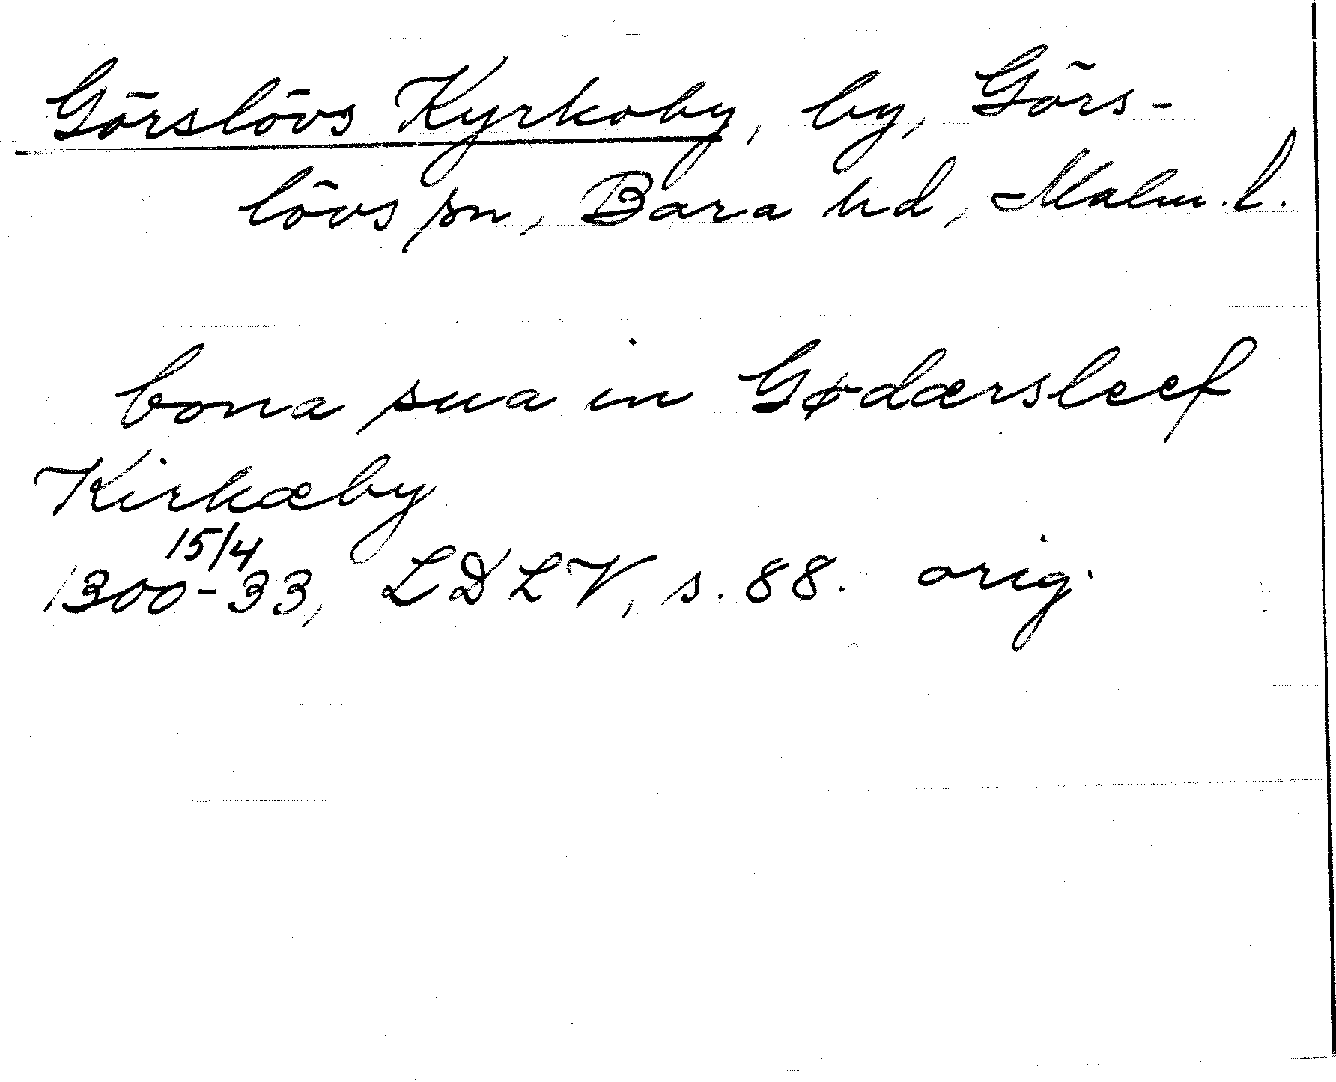 Görslövs Kyrkoby, by, Görs-
lövs sn, Bara hd, Malm. l.
bona sua in Gødærsleef
Kirkæby
15/4
1300-33, LDLV, s. 88. orig.